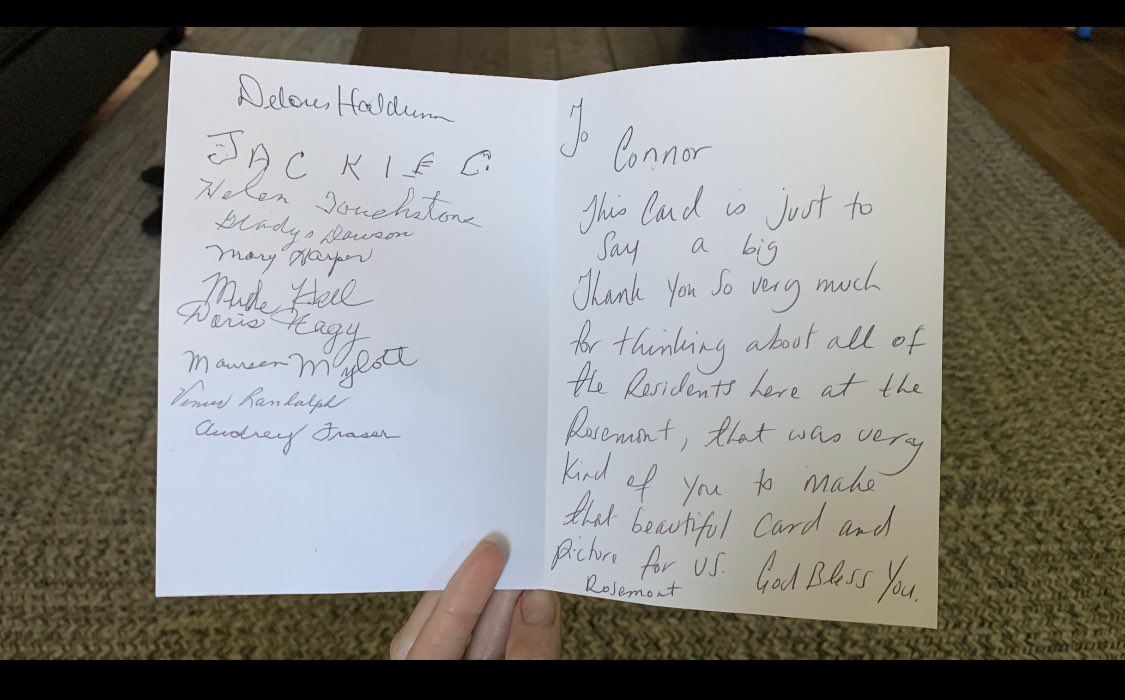 Delores
JACKIE C.
Helen Touchstone
Gladys Dawson
Mary Harper
Doris Hagy
Maureen Mylott
Venus Randolph
Audrey Fraser
To
Connor
This Card is just to
Say a big
Thank you so very much
for thinking about all of
the Residents here at the
Rosemont, that was very
Kind of you to make
that beautiful Card and
picture for US. God Bless You.
Rosemont